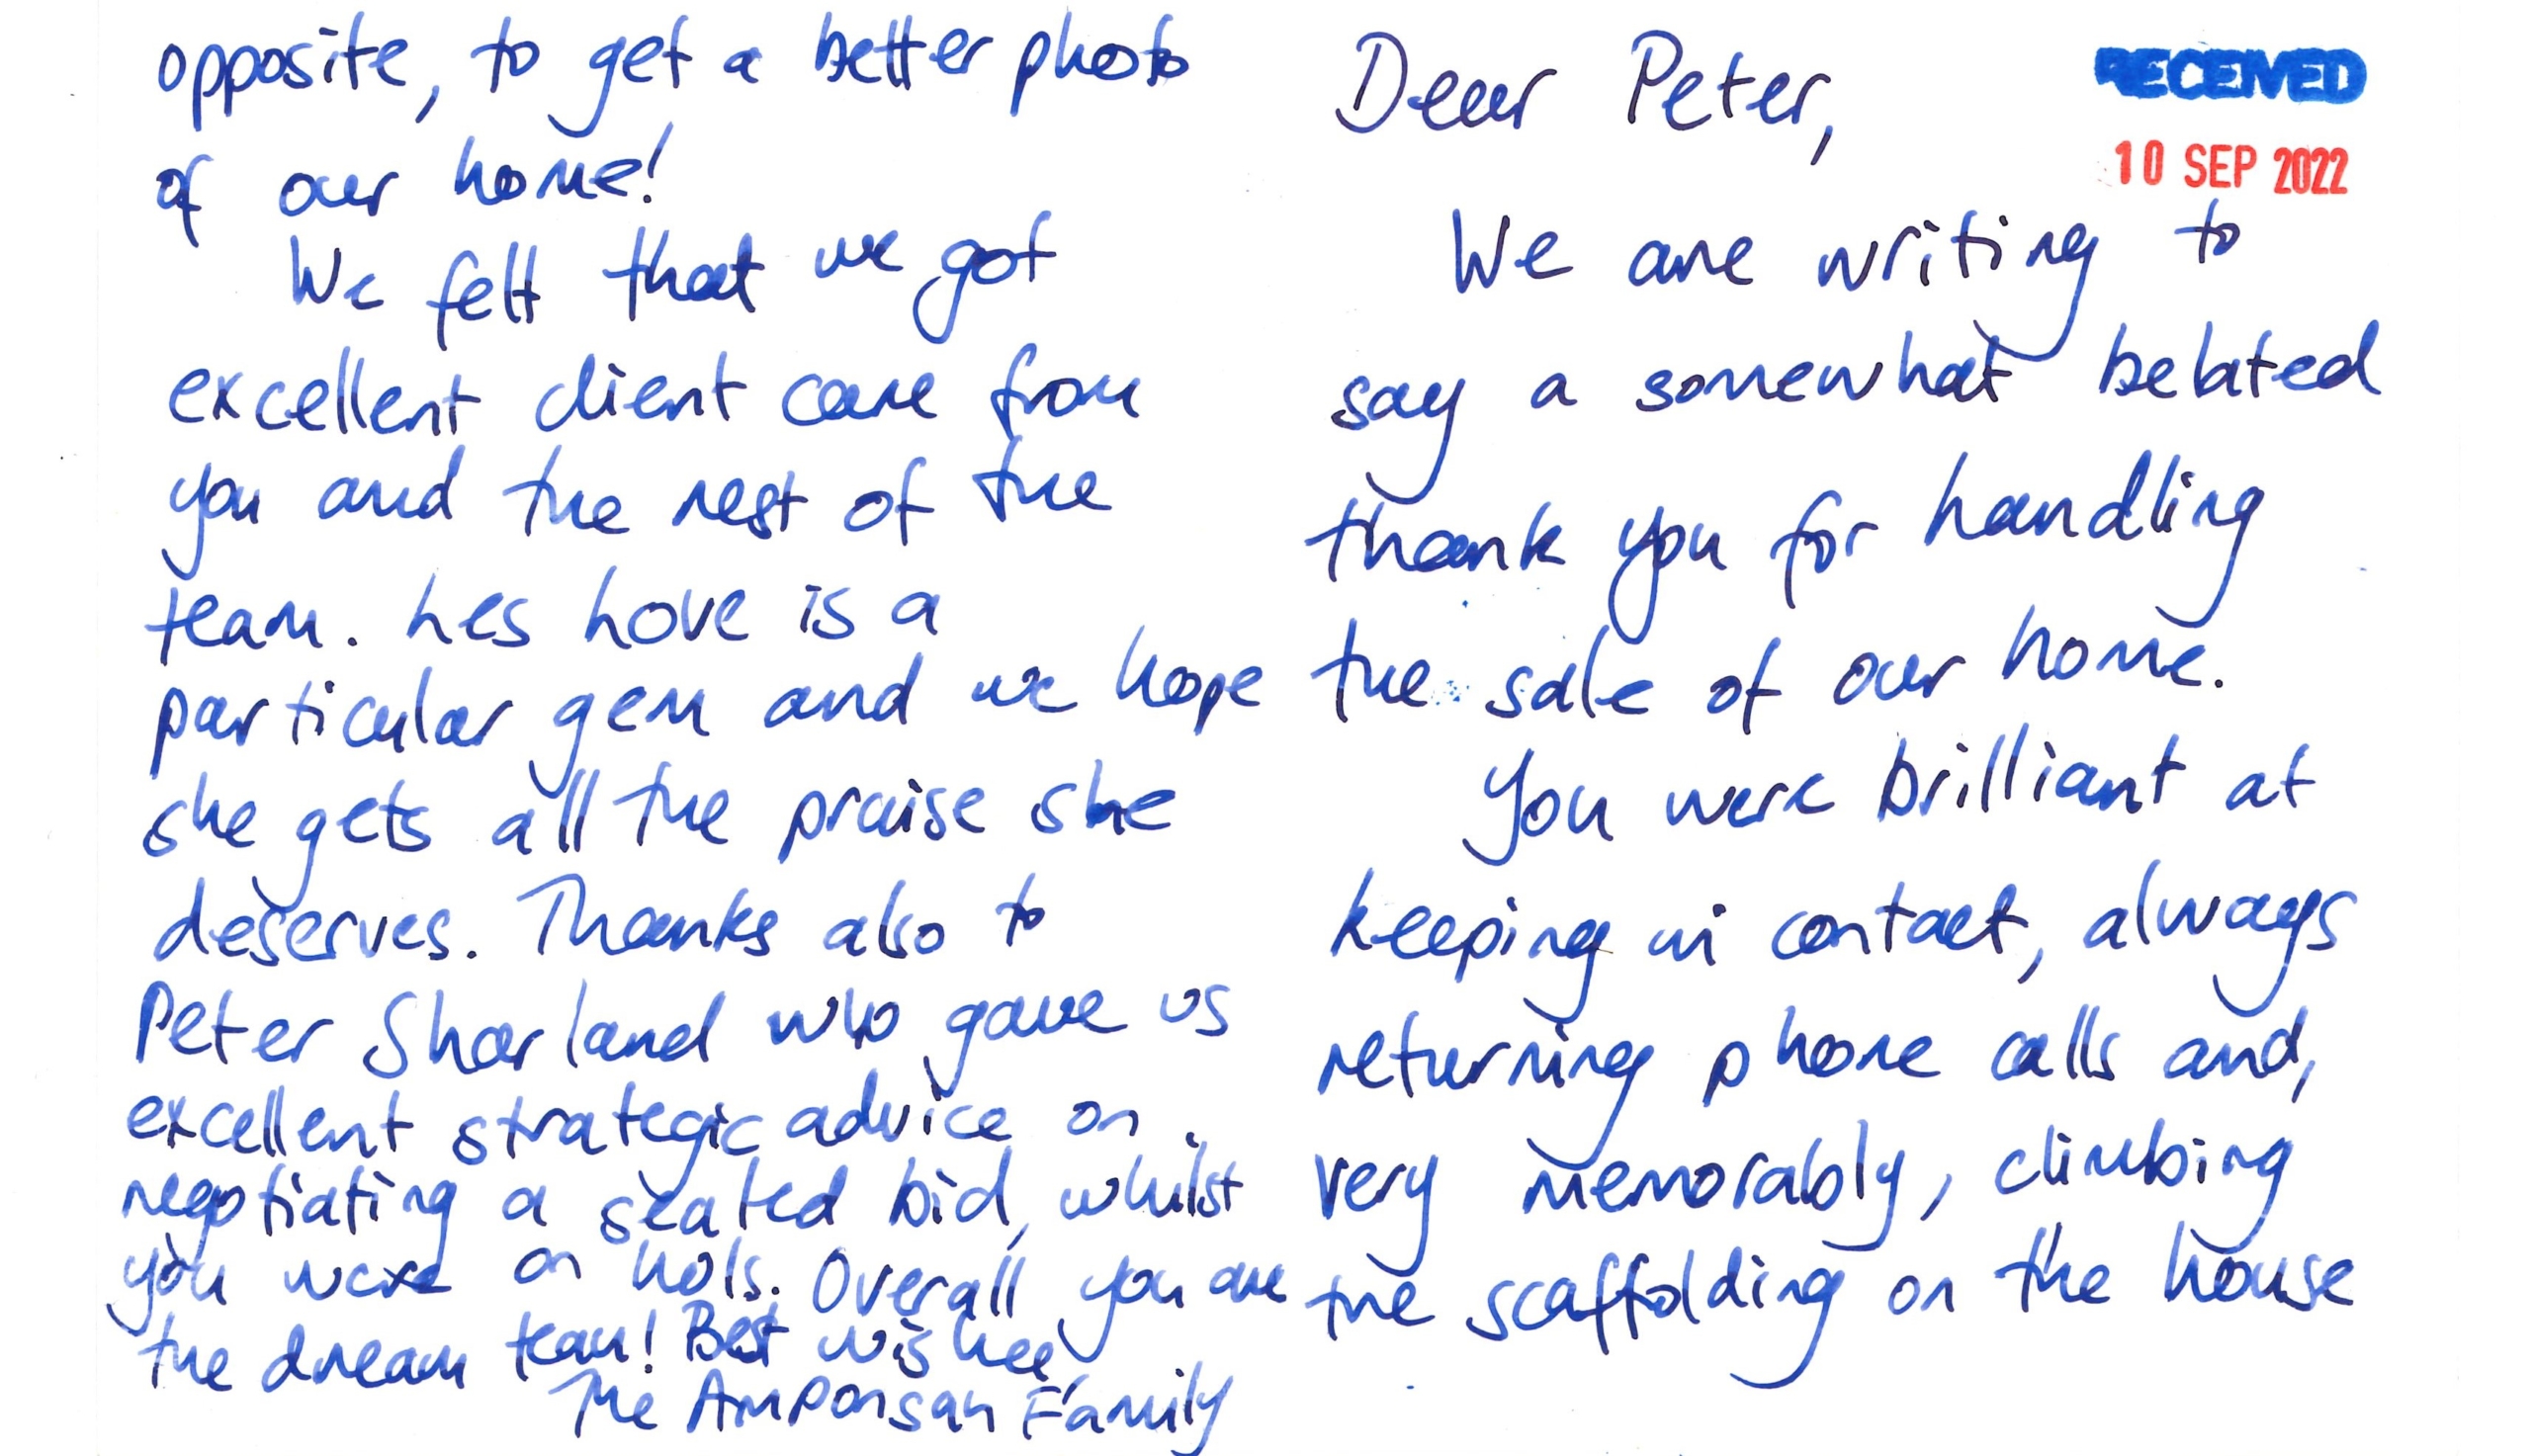 Dear Peter,
RECEIVED
10 SEP 2022
We are writing to
say a somewhat belated
thank you for handling
the sale of our home.
You were brilliant at
keeping in contact, always
returning phone calls and,
very memorably, climbing
the scaffolding on the house
opposite, to get a better photo
of our home!
We felt that we got
excellent client care from
you and the rest of the
team. hes hove is a
particular gem and we hope
she gets all the praise she
deserves. Thanks also to
Peter Sharland who gave us
excellent strategic advice on
negotiating a sealed bid, whilst
you were on hols. Overall you are
the dream team! Best wishes
The Amponsah Family